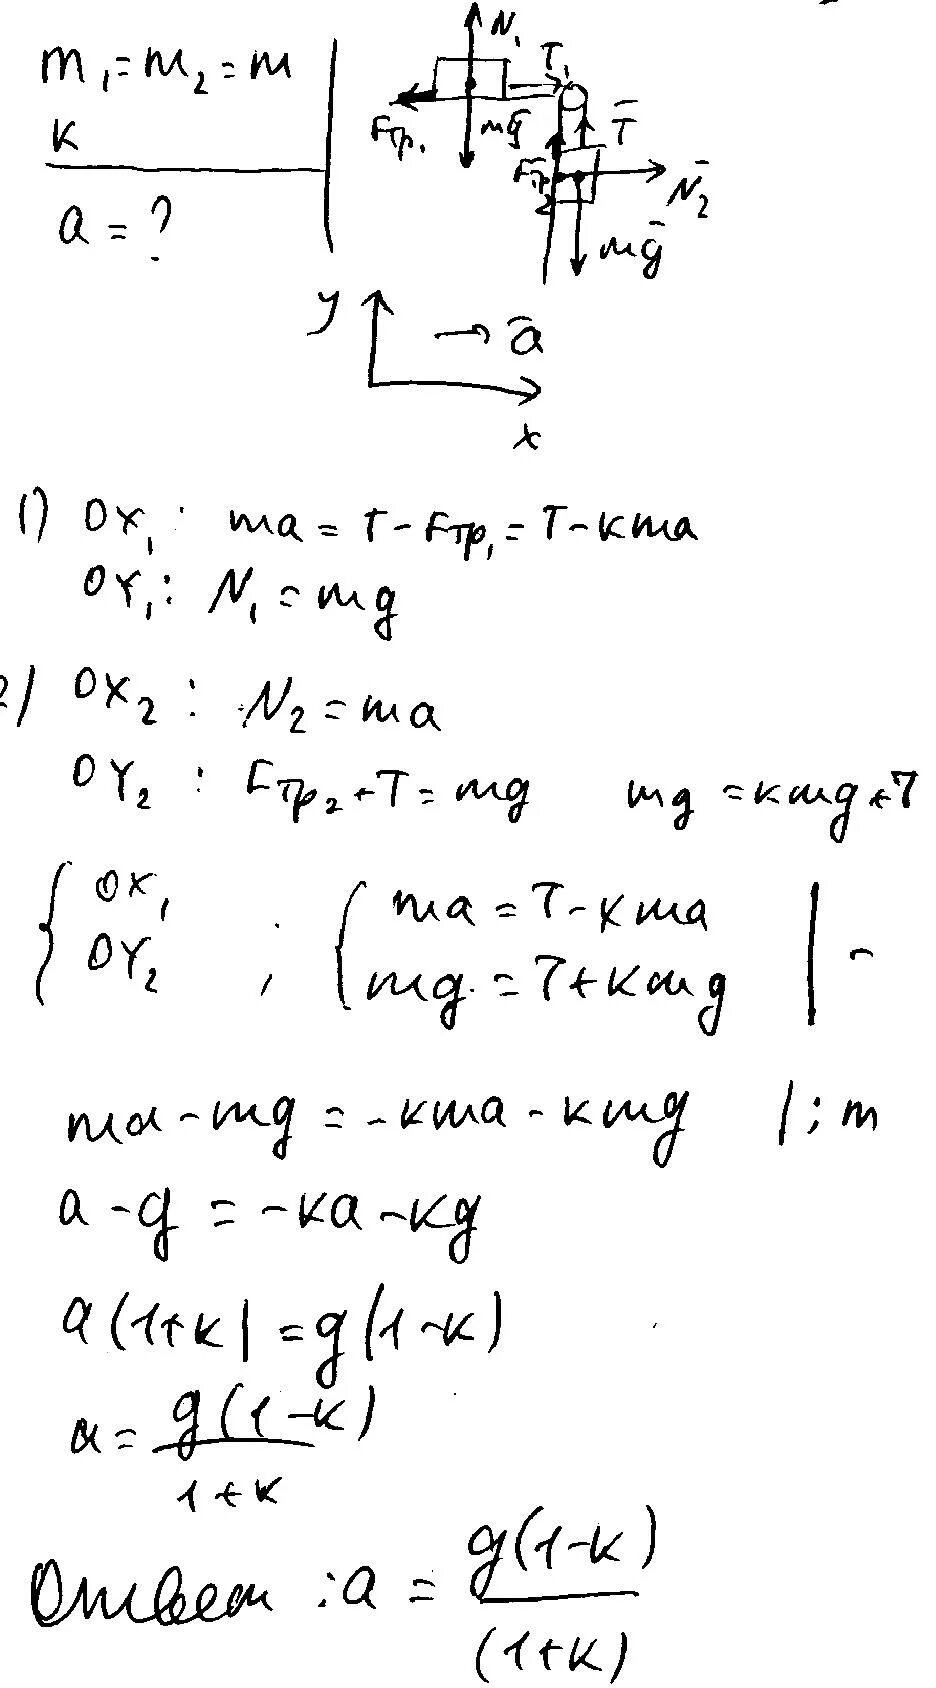 m₁=m₂=m
k
a = ?
N₁
T₁
Fтр₁
mg
T
Fтр2
N₂
mg
y
a
x
1) OX₁: ma = T - Fтр₁ = T - kma
OY₁: N₁ = mg
2) OX₂: N₂ = ma
OY₂: Fтр₂ + T = mg mg = kmg + T
{ OX₁ ; { ma = T - kma | -
OY₂ mg = T + kmg
ma - mg = -kma - kmg | : m
a - g = -ka - kg
a(1+k) = g(1-k)
a = g(1-k)
1+k
Ответ: a = g(1-k)
(1+k)